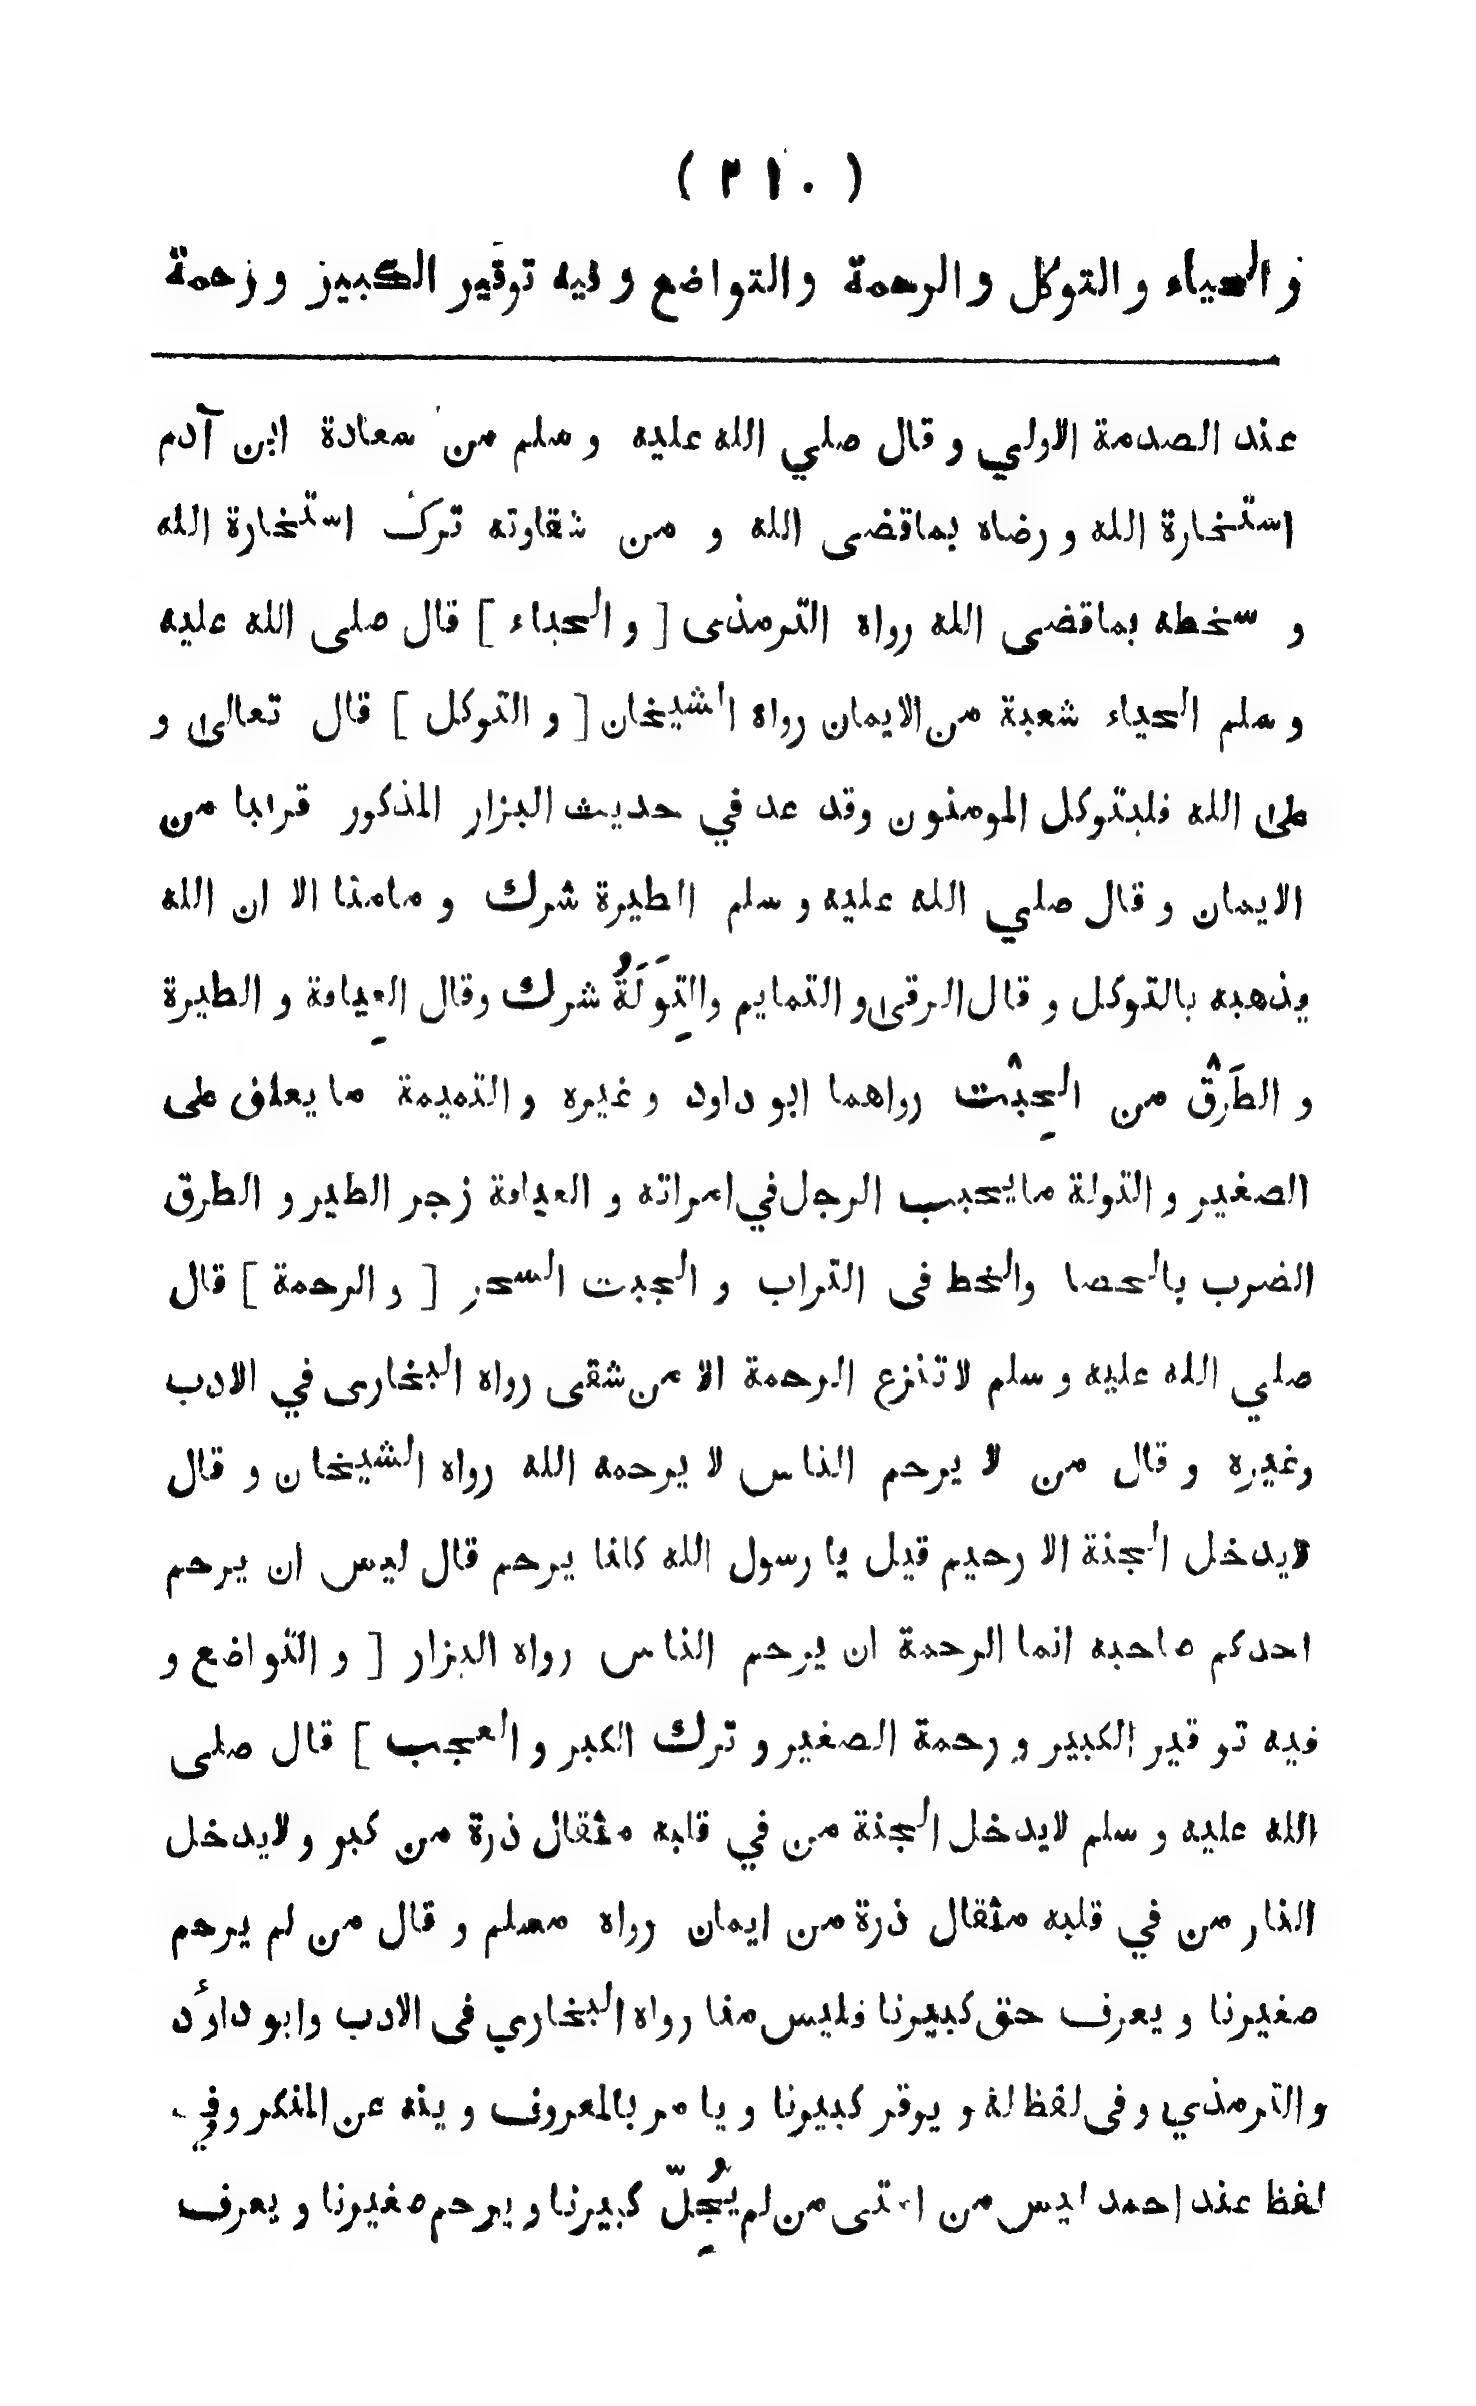 ( ٢١٠ )
و الحياء و التوكل و الرحمة والتواضع و فيه توقير الكبير و رحمة
عند الصدمة الاولي و قال صلي الله عليه و سلم من سعادة ابن آدم
استخارة الله و رضاه بماقضى الله و من شقاوته ترك استخارة الله
و سخطه بماقضى الله رواه الترمذى [ و الحياء ] قال صلى الله عليه
و سلم الحياء شعبة من الايمان رواه الشيخان [ و التوكل ] قال تعالى و
على الله فليتوكل المومنون وقد عد في حديث البزار المذكور قرابا من
الايمان و قال صلي الله عليه و سلم الطيرة شرك و مامنا الا ان الله
يذهبه بالتوكل و قال الرقى و التمايم والتِوَلَةُ شرك وقال العِيافة و الطيرة
و الطَرْق من الجِبْت رواهما ابو داود و غيره و التميمة ما يعلق على
الصغير و التولة مايحبب الرجل في امراته و العيافة زجر الطير و الطرق
الضرب بالحصا والخط فى التراب و الجبت السحر [ و الرحمة ] قال
صلي الله عليه و سلم لاتنزع الرحمة الا من شقى رواه البخارى في الادب
وغيره و قال من لا يرحم الناس لا يرحمه الله رواه الشيخان و قال
لايدخل الجنة الا رحيم قيل يا رسول الله كلنا يرحم قال ليس ان يرحم
احدكم صاحبه انما الرحمة ان يرحم الناس رواه البزار [ و التواضع و
فيه توقير الكبير و رحمة الصغير و ترك الكبر و العجب ] قال صلى
الله عليه و سلم لايدخل الجنة من في قلبه مثقال ذرة من كبر و لايدخل
النار من في قلبه مثقال ذرة من ايمان رواه مسلم و قال من لم يرحم
صغيرنا و يعرف حق كبيرنا فليس منا رواه البخاري فى الادب وابو داوٴد
والترمذي و فى لفظ له و يوقر كبيرنا و يا مر بالمعروف و ينه عن المنكر وفي
لفظ عند احمد ليس من امتى من لم يُجِلّ كبيرنا و يرحم صغيرنا و يعرف